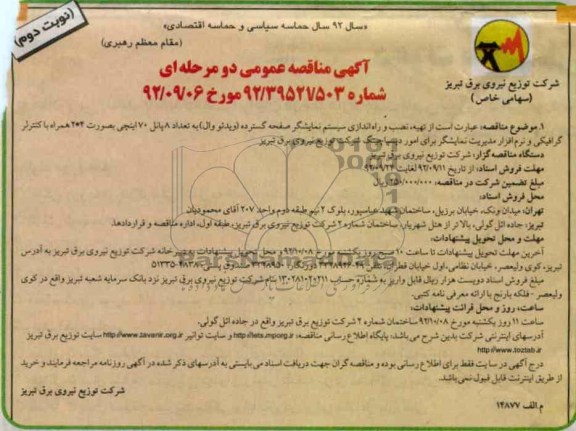 (نوبت دوم)
«سال ۹۲ سال حماسه سیاسی و حماسه اقتصادی»
(مقام معظم رهبری)
آگهی مناقصه عمومی دو مرحله ای
شماره ۹۲/۳۹۵۲۷۵۰۳ مورخ ۹۲/۰۹/۰۶
شرکت توزیع نیروی برق تبریز
(سهامی خاص)
۱. موضوع مناقصه: عبارت است از تهیه، نصب و راه اندازی سیستم نمایشگر صفحه گسترده (ویدئو وال) به تعداد ۸ پانل ۷۰ اینچی بصورت ۴*۲ همراه با کنترلر
گرافیکی و نرم افزار مدیریت نمایشگر برای امور دیسپاچینگ شرکت توزیع نیروی برق تبریز
دستگاه مناقصه گزار: شرکت توزیع نیروی برق تبریز
مهلت فروش اسناد: از تاریخ ۹۲/۰۹/۱۱ لغایت
مبلغ تضمین شرکت در مناقصه: ریال
محل فروش اسناد:
تهران: میدان ونک، خیابان برزیل، ساختمان شهید عباسپور، بلوک ۲ نیم طبقه دوم واحد ۲۰۷ آقای محمودیان
تبریز: جاده ائل گولی، بالاتر از هتل شهریار، ساختمان شماره ۲ شرکت توزیع نیروی برق تبریز، طبقه اول، اداره مناقصه و قراردادها.
مهلت و محل تحویل پیشنهادات:
آخرین مهلت تحویل پیشنهادات تا ساعت ۱۰ صبح روز یکشنبه مورخ ۹۲/۱۰/۰۸ و محل تحویل پیشنهادات دبیرخانه شرکت توزیع نیروی برق تبریز به آدرس
تبریز، کوی ولیعصر، خیابان نظامی، اول خیابان فطران
مبلغ فروش اسناد دویست هزار ریال قابل واریز به شماره حساب بنام شرکت توزیع نیروی برق تبریز نزد بانک سرمایه شعبه تبریز واقع در کوی
ولیعصر - فلکه بارنج با ارائه معرفی نامه کتبی.
ساعت، روز و محل قرائت پیشنهادات:
ساعت ۱۱ روز یکشنبه مورخ ۹۲/۱۰/۰۸ ساختمان شماره ۲ شرکت توزیع برق تبریز واقع در جاده ائل گولی.
آدرسهای اینترنتی شرکت بدین شرح می باشد: پایگاه اطلاع رسانی مناقصه: http://iets.mporg.ir و سایت توانیر http://www.tavanir.org.ir سایت توزیع برق تبریز
http://www.toztab.ir
درج آگهی در سایت فقط برای اطلاع رسانی بوده و مناقصه گران جهت دریافت اسناد می بایستی به آدرسهای ذکر شده در آگهی روزنامه مراجعه فرمایند و خرید
از طریق اینترنت قابل قبول نمی باشد.
شرکت توزیع نیروی برق تبریز
م الف ۱۴۸۷۷